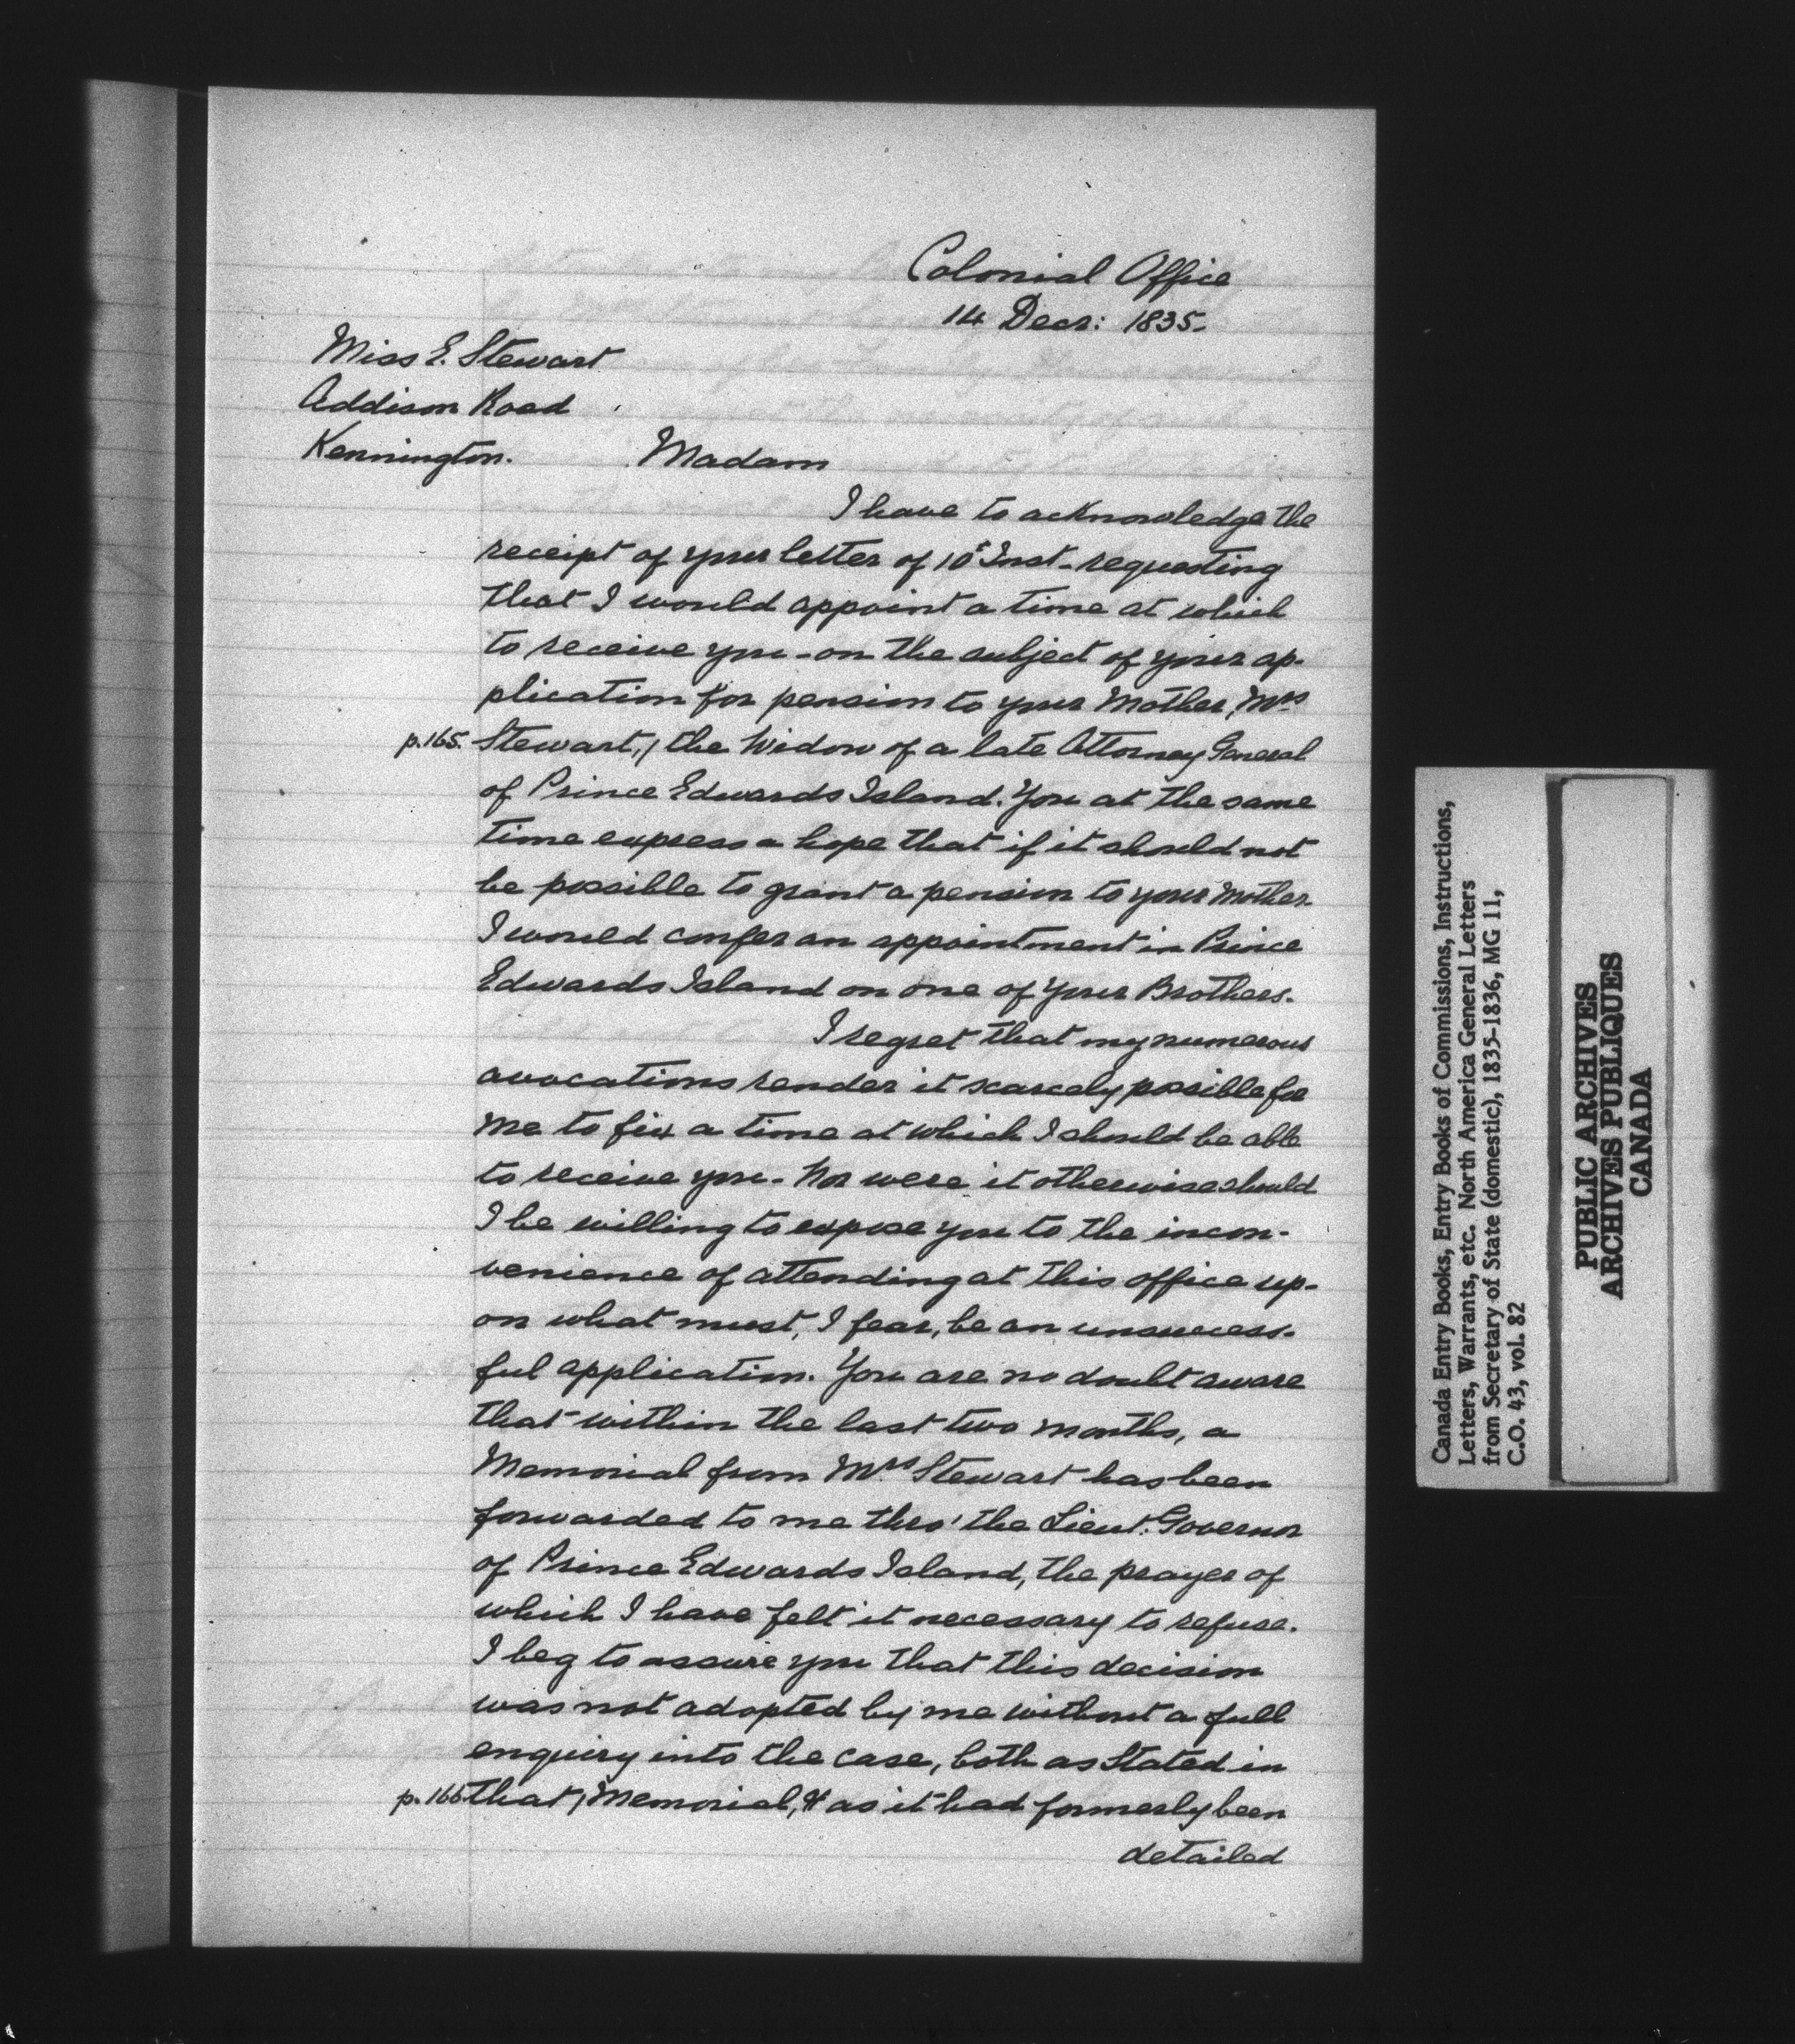 Colonial Office
14 Decr: 1835.
Miss E. Stewart
Addison Road
Kennington.
Madam
I have to acknowledge the
receipt of your letter of 10t Inst - requesting
that I would appoint a time at which
to receive you - on the subject of your ap-
plication for pension to your Mother, Mrs
p.165. Stewart, / the Widow of a late Attorney General
of Prince Edwards Island. You at the same
time express a hope that if it should not
be possible to grant a pension to your Mother
I would confer an appointment in Prince
Edwards Island on one of your Brothers.
I regret that my numerous
avocations render it scarcely possible for
me to fix a time at which I should be able
to receive you - Nor were it otherwise should
I be willing to expose you to the incon-
venience of attending at this office up-
on what must, I fear, be an unsuccess-
ful application. You are no doubt aware
that within the last two months, a
Memorial from Mrs Stewart has been
forwarded to me thro' the Lieut. Governor
of Prince Edwards Island, the prayer of
which I have felt it necessary to refuse.
I beg to assure you that this decision
was not adopted by me without a full
enquiry into the case, both as Stated in
p.166 that / Memorial, & as it had formerly been
detailed
Canada Entry Books, Entry Books of Commissions, Instructions,
Letters, Warrants, etc. North America General Letters
from Secretary of State (domestic), 1835-1836, MG 11,
C.O. 43, vol. 82
PUBLIC ARCHIVES
ARCHIVES PUBLIQUES
CANADA